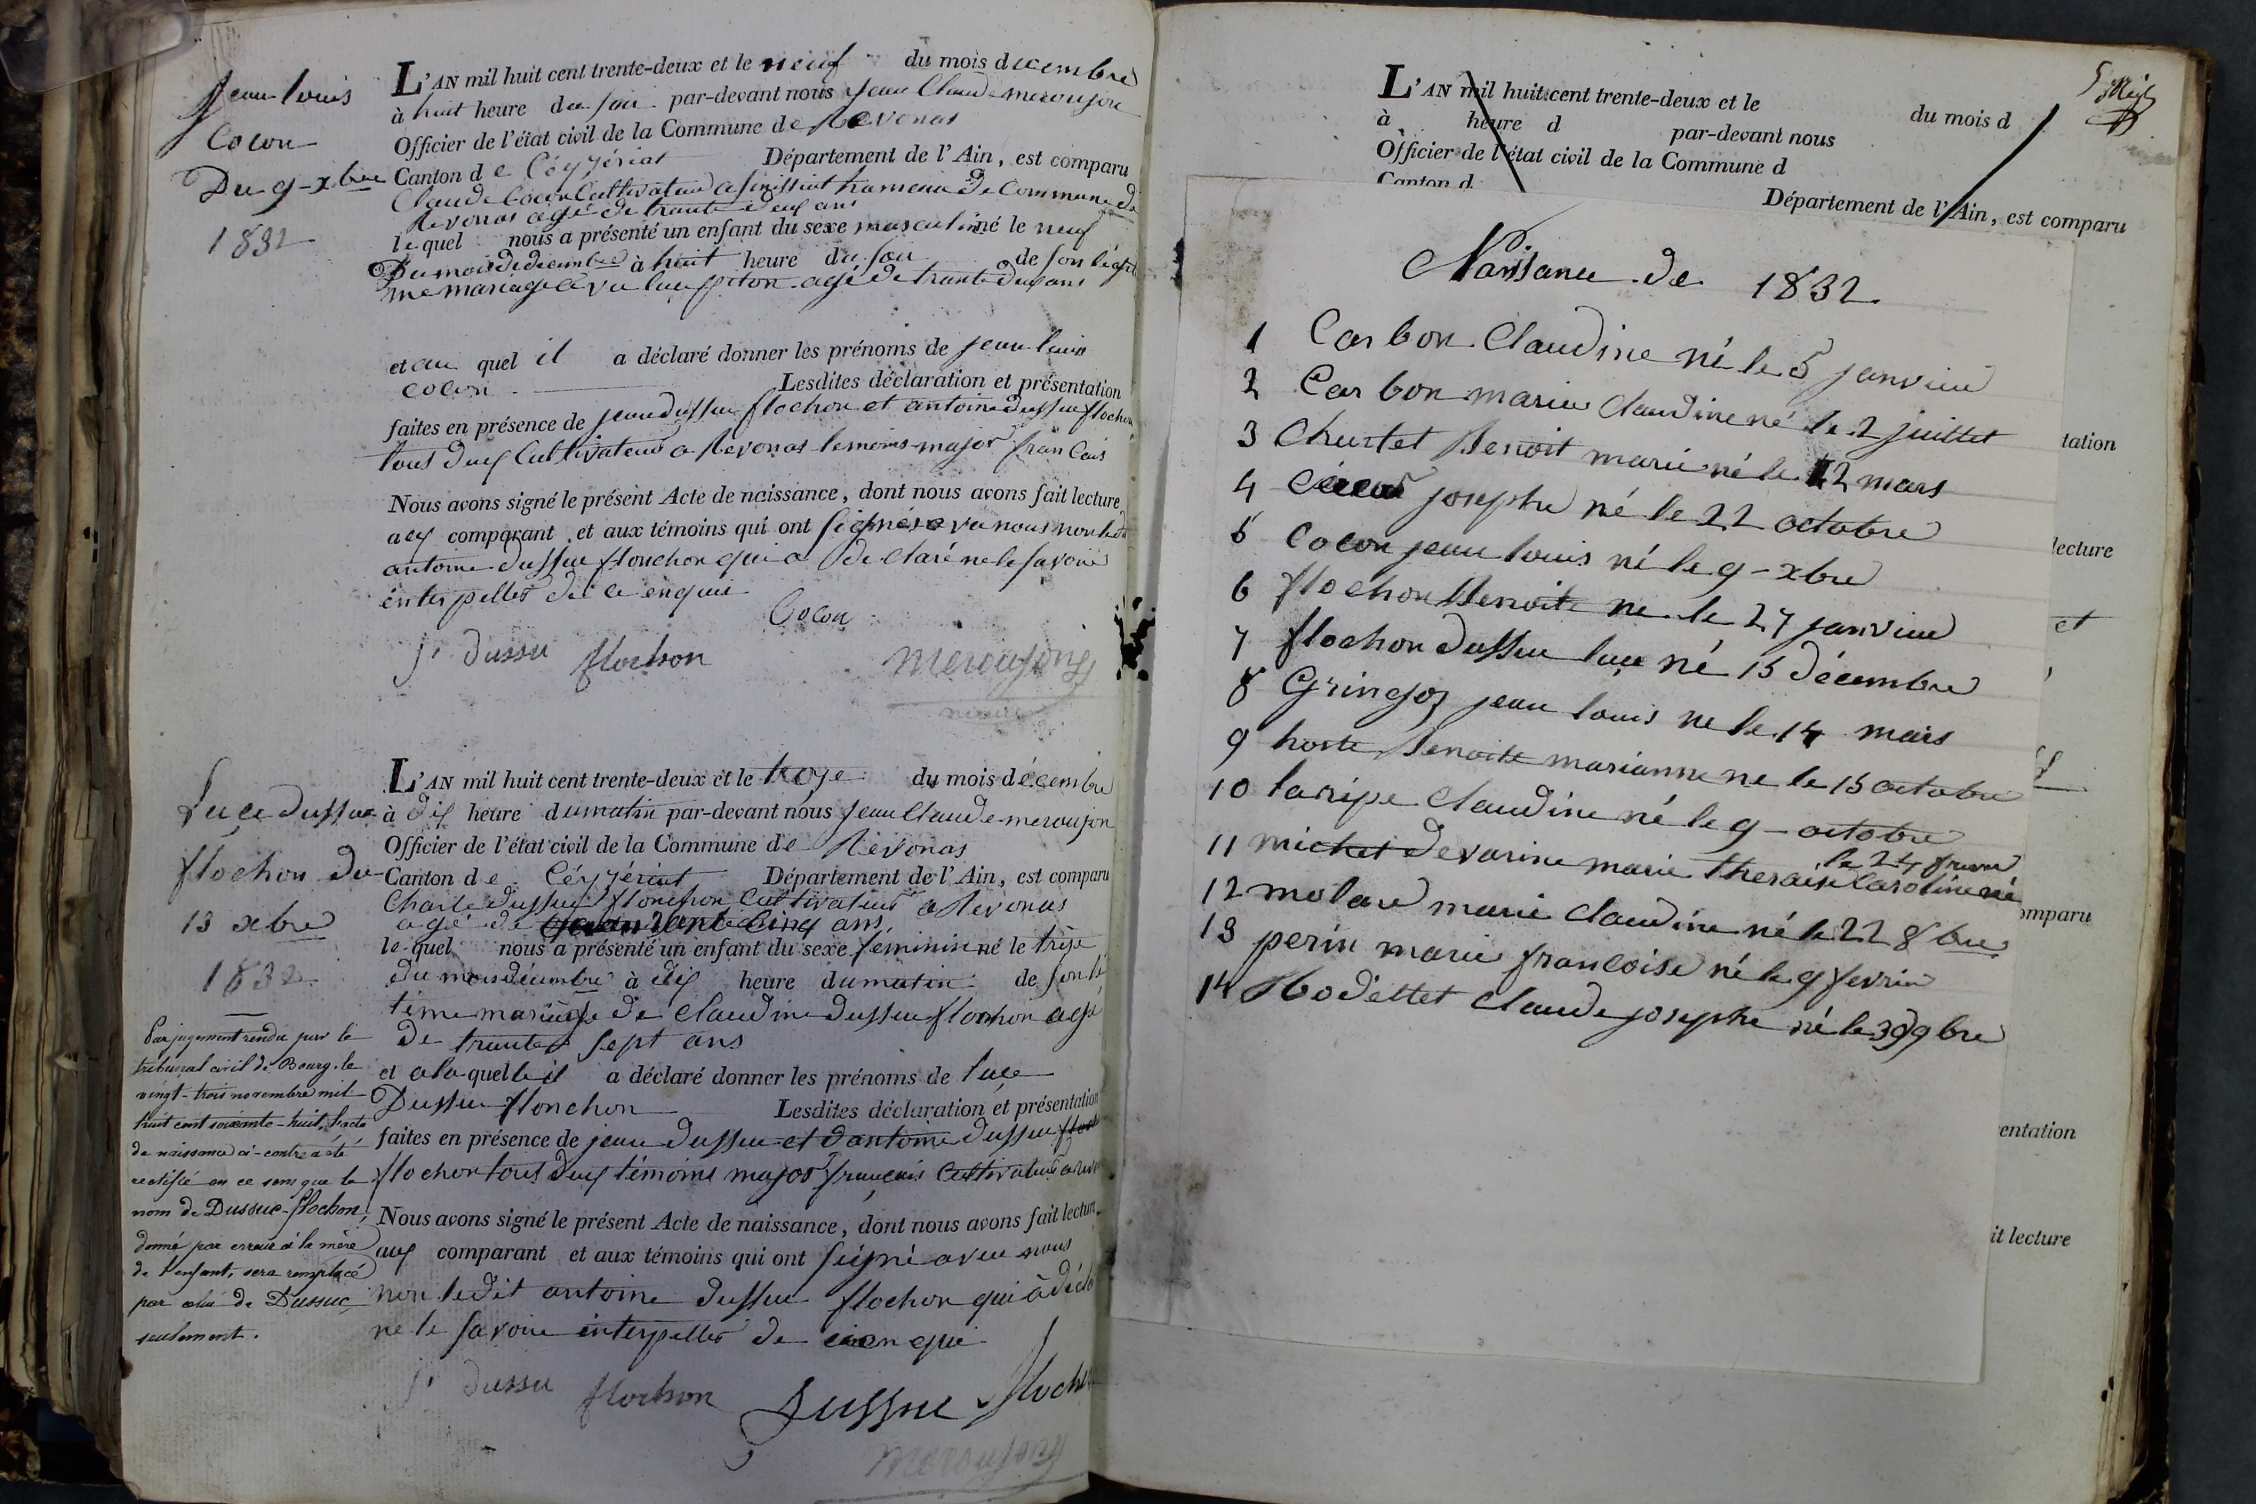 Jean louis
Cocon
Du 9 - xbre
1832
L'AN mil huit cent trente-deux et le neuf du mois decembre
à huit heure du soir par-devant nous Jean Claude merouson
Officier de l'état civil de la Commune de Revonas
Canton de Céyzériat Département de l'Ain, est comparu
Claude Cocon Cultivateur hameau de Commune de
Revonas agé de trante deux ans
lequel nous a présenté un enfant du sexe masculin né le neuf
Du mois de decembre à huit heure du soir de son légiti
me mariage avec piton agé de trante deux ans
et au quel il a déclaré donner les prénoms de jean louis
cocon Lesdites déclaration et présentation
faites en présence de jean dussue flochon et antoine dussue flochon
tous deux Cultivateur a Revonas temoins major francais
Nous avons signé le présent Acte de naissance, dont nous avons fait lecture
aux comparant et aux témoins qui ont signés avec nous non ledit
antoine dussue flonchon qui a déclaré ne le savoire
enterpelles de ce enquis
Cocon
J. dussu flochon merouson
maire
Luce dussue
flochon du
13 xbre
1832
Par jugement rendu par le
tribunal civil de Bourg, le
vingt-trois novembre mil
huit cent soixante-huit, l'acte
de naissance ci-contre a été
rectifié en ce sens que le
nom de Dussue-flochon,
donné par erreur à la mère
de l'enfant, sera remplacé
par celui de Dussuc
seulement.
L'AN mil huit cent trente-deux et le treze du mois décembre
à dix heure du matin par-devant nous jean Claude merouson
Officier de l'état civil de la Commune de Révonas
Canton de Céyzériat Département de l'Ain, est comparu
Charle dussue flonchon Cultivateur a Revonas
agé de cinq ans
le quel nous a présenté un enfant du sexe féminin né le trèse
du mois décembre à dix heure du matin de son lé
time mariage de Claudine dussue flochon agé
de trante sept ans
et a la quelle il a déclaré donner les prénoms de luce
Dussue flonchon Lesdites déclaration et présentation
faites en présence de jean dussue et d'antoine dussue
flochon tous deux témoins major français Cultivateur a
Nous avons signé le présent Acte de naissance, dont nous avons fait lecture
aux comparant et aux témoins qui ont signé avec nous
non ledit antoine dussue flochon qui à déclá
ne le savoire enterpelles de enqui
J. dussu flochon dussue floch
merouson
L'AN mil huit cent trente-deux et le du mois d
à heure d par-devant nous
Officier de l'état civil de la Commune d
Canton d Département de l'Ain, est comparu
Naissance de 1832
1 Carbon Claudine né le 5 janvier
2 Carbon marie Claudine né le 2 juillet
3 Churlet Benoit marie né le 12 mars
4 josephe né le 22 octobre
5 Cocon jean louis né le 9 - xbre
6 flochon Benoite ne le 27 janvier
7 flochon dussue luce né 13 décembre
8 Gringoz jean louis ne le 14 mars
9 hoste Benoite marianne ne le 15 octobre
10 laripe Claudine né le 9 - octobre
le 24 fevrier
11 michet devarine marie theraise Caroline né
12 molard marie Claudine né le 22 8bre
13 perin marie francoise né le 9 fevrier
14 Rodettet Claude josephe né le 30 9bre
tation
lecture
et
omparu
entation
it lecture